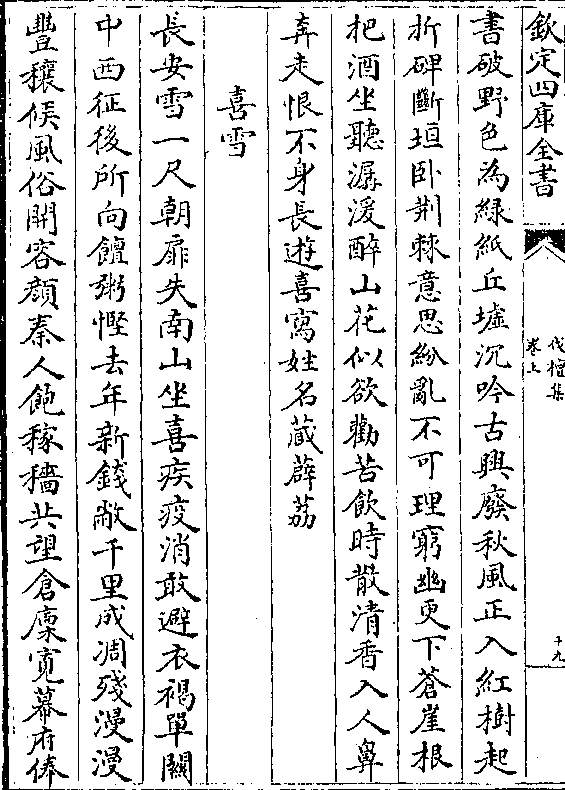 欽定四庫全書
伐檀集
卷上
十九
書破野色為緑紙丘墟沉吟古興廢秋風正入紅樹起
折碑斷垣卧荆棘意思紛亂不可理窮幽更下蒼崖根
把酒坐聽潺湲醉山花似欲勸苦飲時散清香入人鼻
奔走恨不身長遊喜寫姓名藏薜荔
喜雪
長安雪一尺朝扉失南山坐喜疾疫消敢避衣褐單關
中西征後所向饘粥慳去年新錢敝千里成凋殘漫漫
豐穰候風俗開容顔秦人飽稼穡共望倉廩寛幕府俸